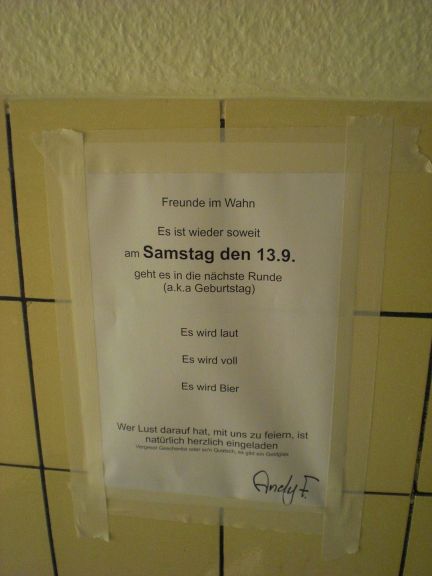 Freunde im Wahn
Es ist wieder soweit
am Samstag den 13.9.
geht es in die nächste Runde
(a.k.a Geburtstag)
Es wird laut
Es wird voll
Es wird Bier
Wer Lust darauf hat, mit uns zu feiern, ist
natürlich herzlich eingeladen
Vergesst Geschenke oder so'n Quatsch, es gibt ein Geldglas
Andy F.